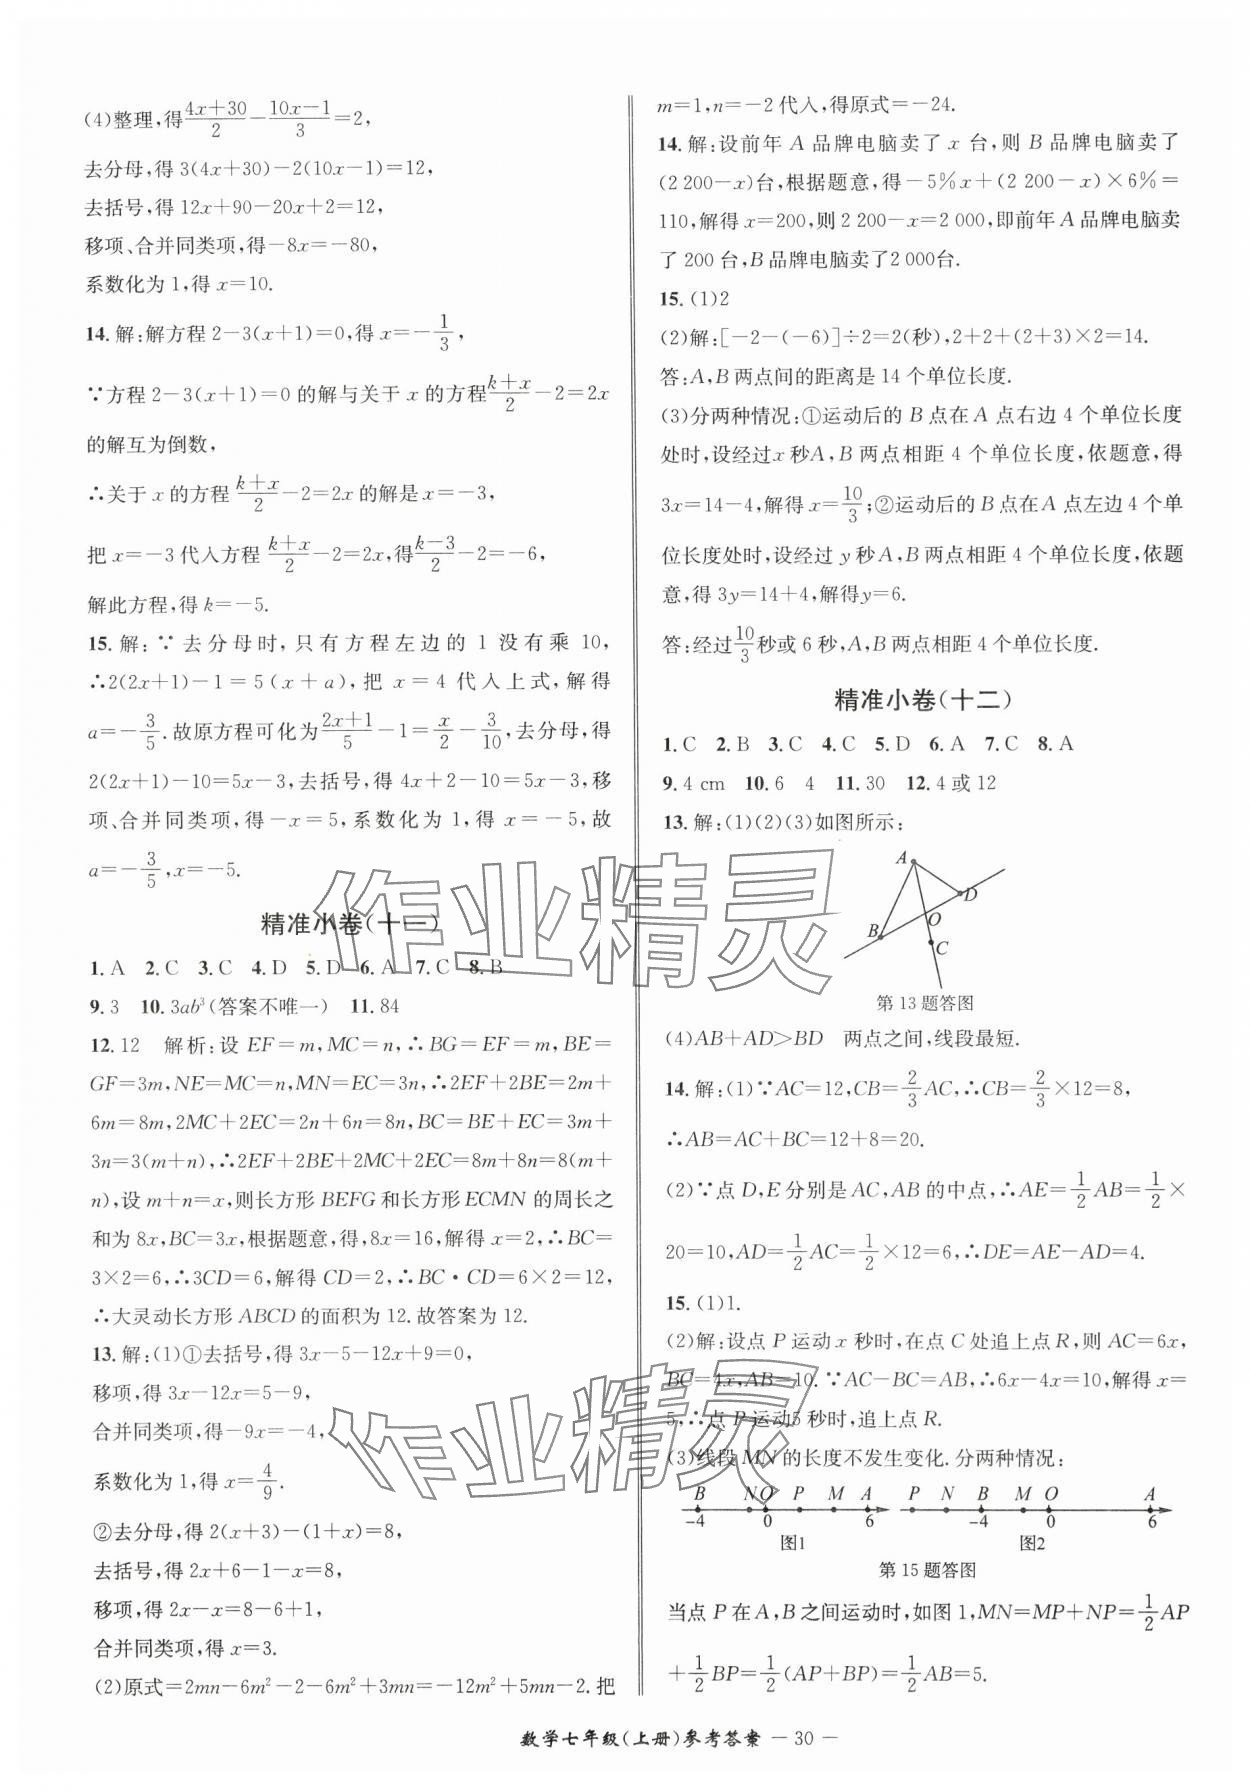 (4)整理,得\frac{4x+30}{2}-\frac{10x-1}{3}=2,
去分母,得 3(4x+30)-2(10x-1)=12,
去括号,得 12x+90-20x+2=12,
移项、合并同类项,得-8x=-80,
系数化为 1,得 x=10.
14.解:解方程 2-3(x+1)=0,得 x=-\frac{1}{3},
∵方程 2-3(x+1)=0 的解与关于 x 的方程\frac{k+x}{2}-2=2x
的解互为倒数,
∴关于 x 的方程\frac{k+x}{2}-2=2x的解是x=-3,
把 x=-3 代入方程 \frac{k+x}{2}-2=2x,得\frac{k-3}{2}-2=-6,
解此方程,得 k=-5.
15.解:∵去分母时,只有方程左边的 1 没有乘 10,
∴2(2x+1)-1=5(x+a),把 x=4 代入上式,解得
a=-\frac{3}{5}.故原方程可化为\frac{2x+1}{5}-1=\frac{x}{2}-\frac{3}{10},去分母,得
2(2x+1)-10=5x-3,去括号,得 4x+2-10=5x-3,移
项、合并同类项,得-x=5,系数化为 1,得 x=-5,故
a=-\frac{3}{5},x=-5.
精准小卷(十一)
1.A 2.C 3.C 4.D 5.D 6.A 7.C 8.B
9.3 10.3ab³(答案不唯一) 11.84
12.12 解析:设 EF=m,MC=n,∴BG=EF=m,BE=
GF=3m,NE=MC=n,MN=EC=3n,∴2EF+2BE=2m+
6m=8m,2MC+2EC=2n+6n=8n,BC=BE+EC=3m+
3n=3(m+n),∴2EF+2BE+2MC+2EC=8m+8n=8(m+
n),设 m+n=x,则长方形 BEFG 和长方形 ECMN 的周长之
和为 8x,BC=3x,根据题意,得,8x=16,解得 x=2,∴BC=
3×2=6,∴3CD=6,解得 CD=2,∴BC·CD=6×2=12,
∴大灵动长方形 ABCD 的面积为 12.故答案为 12.
13.解:(1)①去括号,得 3x-5-12x+9=0,
移项,得 3x-12x=5-9,
合并同类项,得-9x=-4,
系数化为 1,得 x=\frac{4}{9}.
②去分母,得 2(x+3)-(1+x)=8,
去括号,得 2x+6-1-x=8,
移项,得 2x-x=8-6+1,
合并同类项,得 x=3.
(2)原式=2mn-6m²-2-6m²+3mn=-12m²+5mn-2.把
m=1,n=-2 代入,得原式=-24.
14.解:设前年 A 品牌电脑卖了 x 台,则 B 品牌电脑卖了
(2 200-x)台,根据题意,得-5%x+(2 200-x)×6%=
110,解得 x=200,则 2 200-x=2 000,即前年 A 品牌电脑卖
了 200 台,B 品牌电脑卖了2 000台.
15.(1)2
(2)解:[-2-(-6)]÷2=2(秒),2+2+(2+3)×2=14.
答:A,B 两点间的距离是 14 个单位长度.
(3)分两种情况:①运动后的 B 点在 A 点右边 4 个单位长度
处时,设经过x 秒A,B 两点相距 4 个单位长度,依题意,得
3x=14-4,解得 x=\frac{10}{3};②运动后的 B 点在A 点左边 4 个单
位长度处时,设经过 y 秒A,B 两点相距 4 个单位长度,依题
意,得 3y=14+4,解得y=6.
答:经过\frac{10}{3}秒或 6 秒,A,B 两点相距 4 个单位长度.
精准小卷(十二)
1.C 2.B 3.C 4.C 5.D 6.A 7.C 8.A
9.4 cm 10.6 4 11.30 12.4或12
13.解:(1)(2)(3)如图所示:
A
D
B O
C
第 13 题答图
(4)AB+AD>BD 两点之间,线段最短.
14.解:(1)∵AC=12,CB=\frac{2}{3}AC,∴CB=\frac{2}{3}×12=8,
∴AB=AC+BC=12+8=20.
(2)∵点 D,E分别是 AC,AB 的中点,∴AE=\frac{1}{2}AB=\frac{1}{2}×
20=10,AD=\frac{1}{2}AC=\frac{1}{2}×12=6,∴DE=AE-AD=4.
15.(1)1.
(2)解:设点 P 运动 x 秒时,在点 C 处追上点 R,则 AC=6x,
BC=4x,AB=10.∵AC-BC=AB,∴6x-4x=10,解得 x=
5,∴点 P 运动5 秒时,追上点 R.
(3)线段 MN 的长度不发生变化.分两种情况:
B N O P M A P N B M O A
-4 0 6 -4 0 6
图1 图2
第 15 题答图
当点 P 在 A,B 之间运动时,如图 1,MN=MP+NP=\frac{1}{2}AP
+\frac{1}{2}BP=\frac{1}{2}(AP+BP)=\frac{1}{2}AB=5.
数学七年级(上册)参考答案 — 30 —
作业精灵
作业精灵